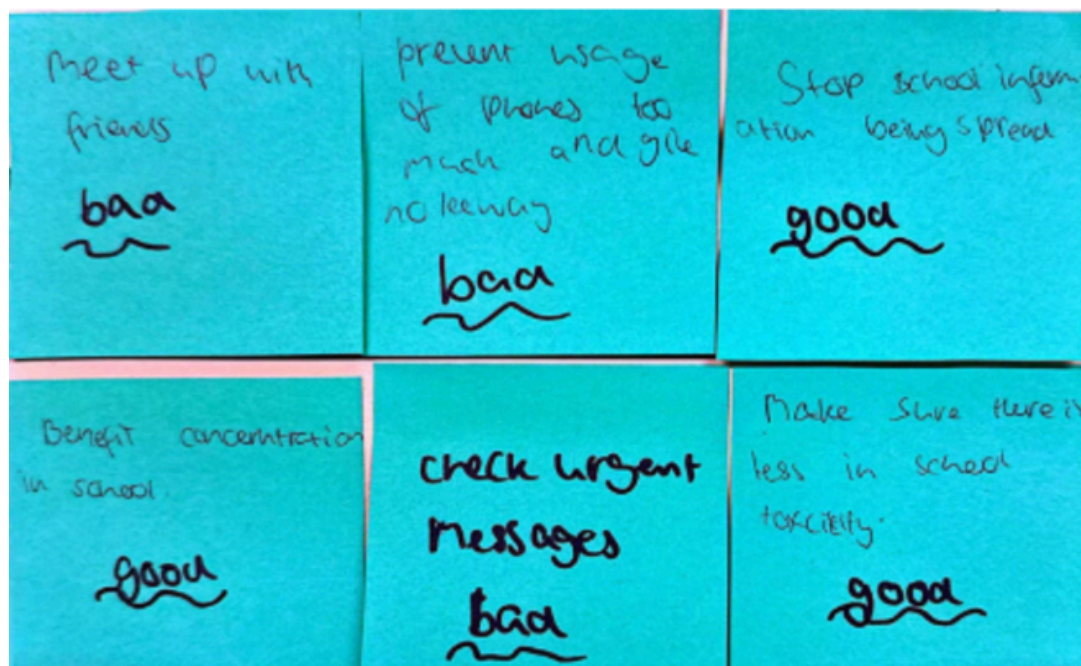 Meet up with
friends
bad
prevent usage
of phones too
much and give
no leeway
bad
Stop school inform
ation being spread
good
Benefit concerntration
in school.
good
check urgent
messages
bad
Make sure there is
less in school
toxcicity.
good